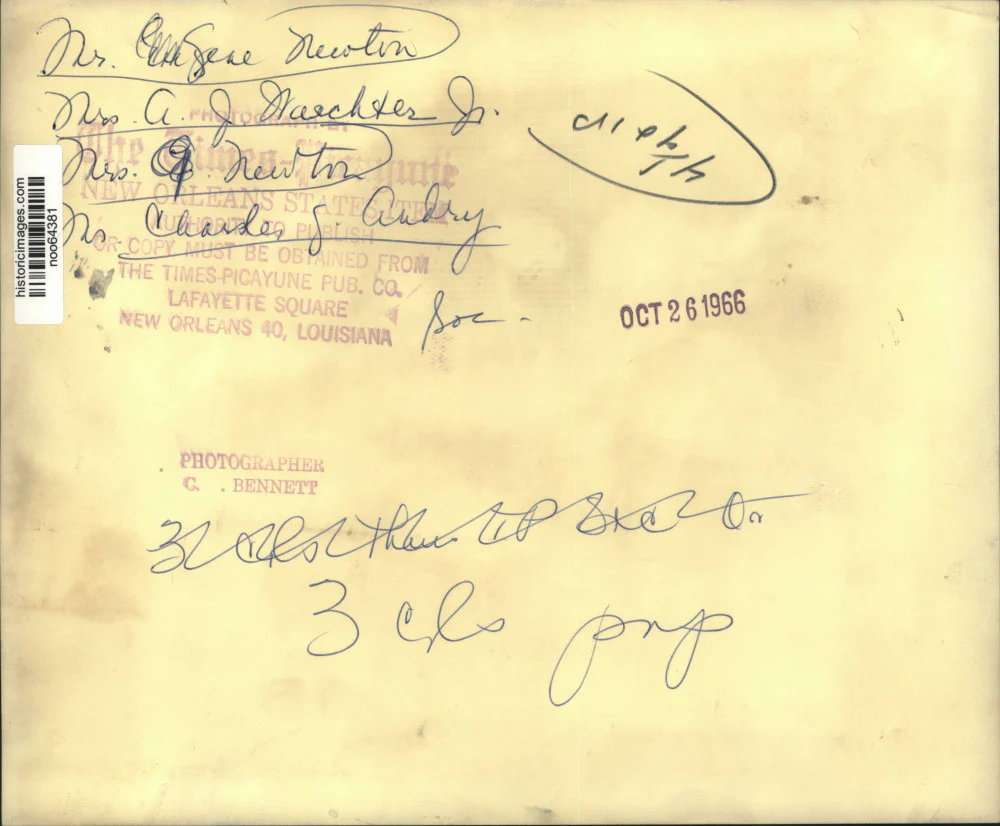 Mr. Eugene Newton
Mrs. A. J. Waechter Jr.
Mrs. Newton
Charles J. Andry
PHOTOGRAPH BY
The Times-Picayune
NEW ORLEANS STATES-ITEM
AUTHORITY TO PUBLISH
OR COPY MUST BE OBTAINED FROM
THE TIMES-PICAYUNE PUB. CO.
LAFAYETTE SQUARE
NEW ORLEANS 40, LOUISIANA
Soc -
OCT 26 1966
historicimages.com
noo64381
PHOTOGRAPHER
C. . BENNETT
3 cls
3 cls pnp